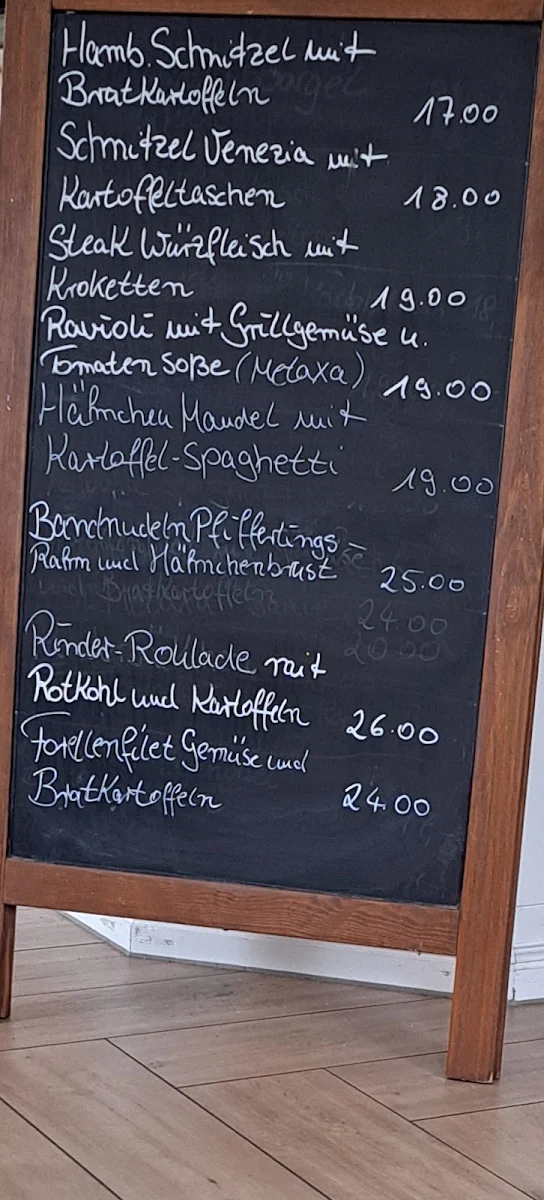 Hamb. Schnitzel mit
Bratkartoffeln 17.00
Schnitzel Venezia mit
Kartoffeltaschen 18.00
Steak Würzfleisch mit
Kroketten 19.00
Ravioli mit Grillgemüse u.
Tomaten Soße (Metaxa) 19.00
Hähnchen Mandel mit
Kartoffel-Spaghetti 19.00
Bandnudeln Pfifferlings-
Rahm und Hähnchenbrust 25.00
und Bratkartoffeln 24.00
20.00
Rinder-Roulade mit
Rotkohl und Kartoffeln 26.00
Forellenfilet Gemüse und
Bratkartoffeln 24.00